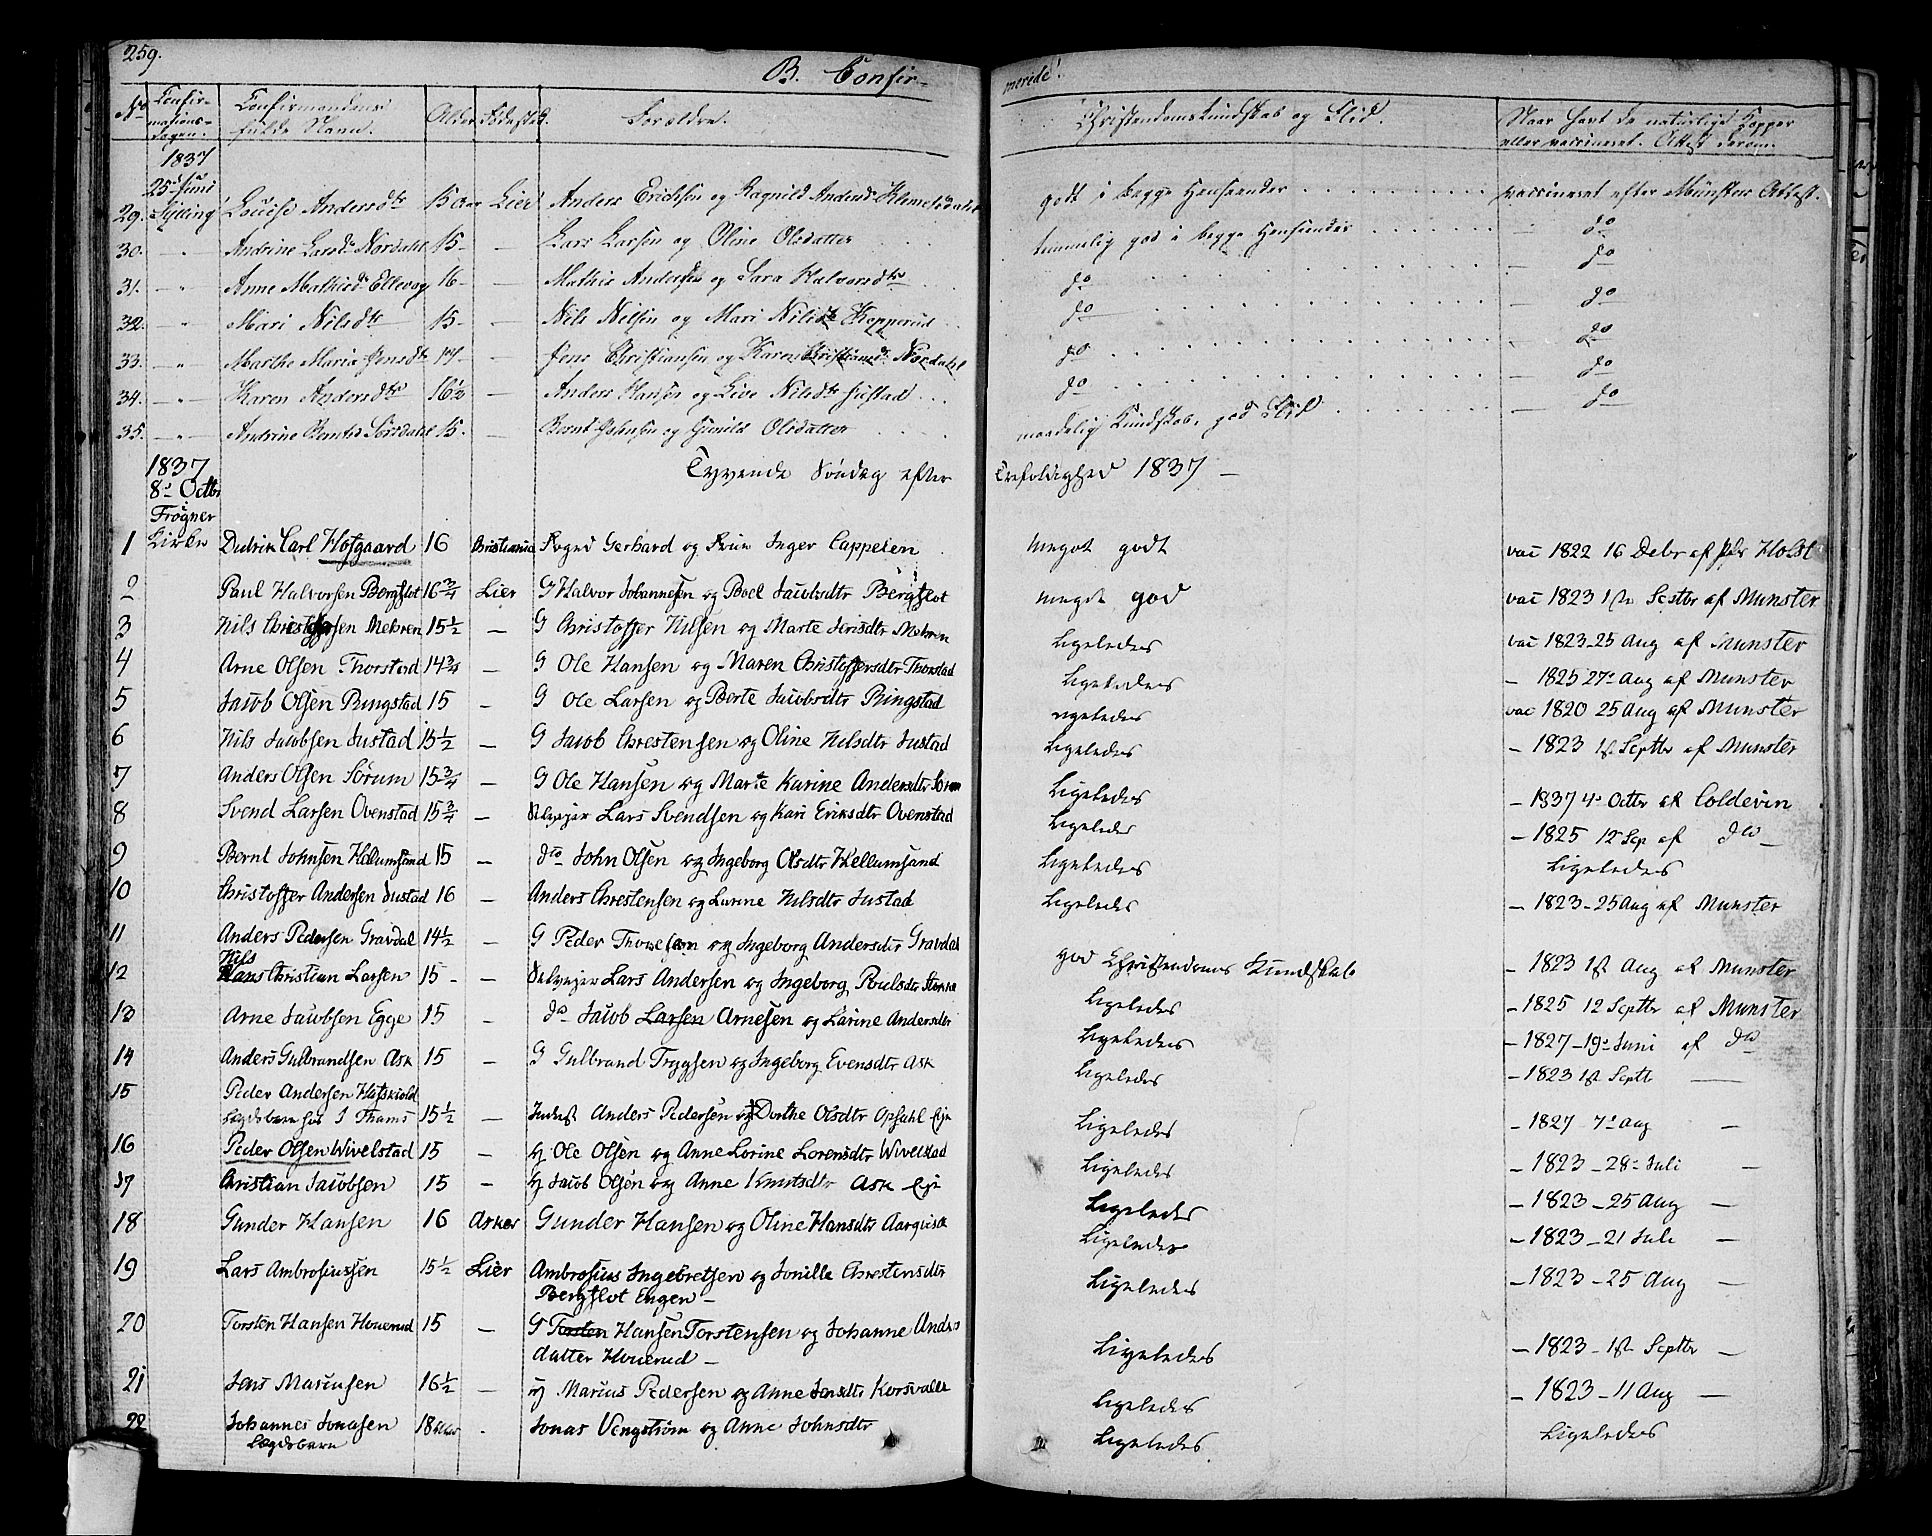 259.
B. Confir- merede.
No Confir-mations-Dagen. Confirmandens fulde Navn. Alder Fødested. Forældre. Christendomskundskab og Flid. Naar havt de naturlige Kopper eller vaccineret. Attest derom.
1837
25 Juni
29. Sylling Lovise Andersdtr 15 Aar Lier Anders Erichsen og Ragnild Andersd. godt i begge Henseender vaccineret efter Münsters Attest.
30. - " - Andrine Larsd. Nordahl 15 - Lars Larsen og Oline Olsdatter temmelig god i begge Henseender - do
31. - " - Anne Mathisd. Ellevog 16 - - Mathis Andersen og Sara Halvorsdtr do - do
32. - " - Mari Nilsdtr 15 - - Nils Nilsen og Mari Nilsdtr Kopperud do - do
33. - " - Marthe Maria Jensdtr 17 - - Jens Christiansen og Karen Christiansd. Nordahl do - do
34. - " - Karen Andersdtr 16½ - Anders Hansen og Live Nilsdtr Justad do - do
35. - " - Andrine Berntsd. Sørsdahl 15 - - Bernt Johnsen og Gunild Olsdatter maadelig Kundskab, god Flid - do
1837
8de Octbr Tyvende Søndag efter Trefoldighed 1837 -
Frogner
1 Kirke Didrik Carl Hofgaard 16 Christiania Foged Gerhard og Frue Inger Cappelen meget godt vac 1822 16 Debr af Holst
2 Paul Halvorsen Bergflot 16¾ Lier G Halvor Johannesen og Boel Jacobsdtr Bergflot meget god vac 1823 1ste Septbr af Munster
3 Nils Christoffersen Mehren 15½ - G Christoffer Nilsen og Marte Jensdtr Mehren Ligeledes vac 1823 - 25 Aug af Munster
4 Arne Olsen Thorstad 14¾ - G Ole Hansen og Maren Christoffersdtr Thorstad Ligeledes - 1825 27de Aug af Munster
5 Jacob Olsen Ringstad 15 - G Ole Larsen og Berte Jacobsdtr Ringstad Ligeledes vac 1820 25 Aug af Munster
6 Nils Jacobsen Justad 15½ - G Jacob Chrestensen og Oline Nilsdtr Justad Ligeledes - 1823 1st Septbr af Munster
7 Anders Olsen Sørum 15¾ - G Ole Hansen og Marte Karine Andersdtr Sørum Ligeledes - 1837 4de Octbr af Coldevin
8 Svend Larsen Ovenstad 15¾ - Selvejer Lars Svendsen og Kari Eriksdtr Ovenstad Ligeledes - 1825 12 Sep af do -
9 Bernt Johnsen Hellumsand 15 - do John Olsen og Ingeborg Olsdtr Hellumsand Ligeledes Ligeledes
10 Christoffer Andersen Justad 16 - Anders Chrestensen og Karine Nilsdtr Justad Ligeledes - 1823 - 25 Aug af Munster
11 Anders Pedersen Gravdal 14½ - G Peder Thoresen og Ingeborg Andersdtr Gravdal god Christendoms Kundskab - 1823 1st Aug af Munster
Nils
12 Hans Christian Larsen 15 - - Selvejer Lars Andersen og Ingeborg Poulsdtr Ligeledes - 1825 12 Septbr af Munster
13 Arne Jacobsen Egge 15 - do Jacob Larsen Arnesen og Karine Andersdtr Ligeledes - 1827 - 19de Juni af do
14 Anders Gulbrandsen Ask 15 - G Gulbrand Trygsen og Ingeborg Evensdtr Ask Ligeledes - 1823 1st Septbr -
15 Peder Andersen Hafskiold
Lægdsbarn hos J Thams 15½ - Inderst Anders Pedersen og Dorthe Olsdtr Opsahl Eje Ligeledes - 1827 7de Aug -
16 Peder Olsen Wivelstad 15 - Ole Olsen og Anne Lorine Lorensdtr Wivelstad Ligeledes - 1823 - 28de Juli -
17 Christian Jacobsen 15 - Jacob Olsen og Anne Knutsdtr Ask Eje Ligeledes - 1823 - 25 Aug -
18 Gunder Hansen 16 Asker Gunder Hansen og Oline Hansdtr Ligeledes - 1823 - 21 Juli -
19 Lars Ambrosiussen 15½ Lier Ambrosius Ingebretsen og Jonille Chrestensdtr Ligeledes - 1823 - 25 Aug -
Bergflot Engen -
20 Torsten Hansen Houerud 15 - G Torsten Hansen Torstensen og Johanne Anders Ligeledes - 1823 - 1st Septbr -
datter Houerud -
21 Jens Mariusen 16½ - Marius Pedersen og Anne Jensdtr Korsvald Ligeledes - 1823 - 11 Aug -
22 Johannes Jonasen 18 Aar Jonas Vengstrøm og Anne Johnsdtr Ligeledes Ligeledes
Lægdsbarn